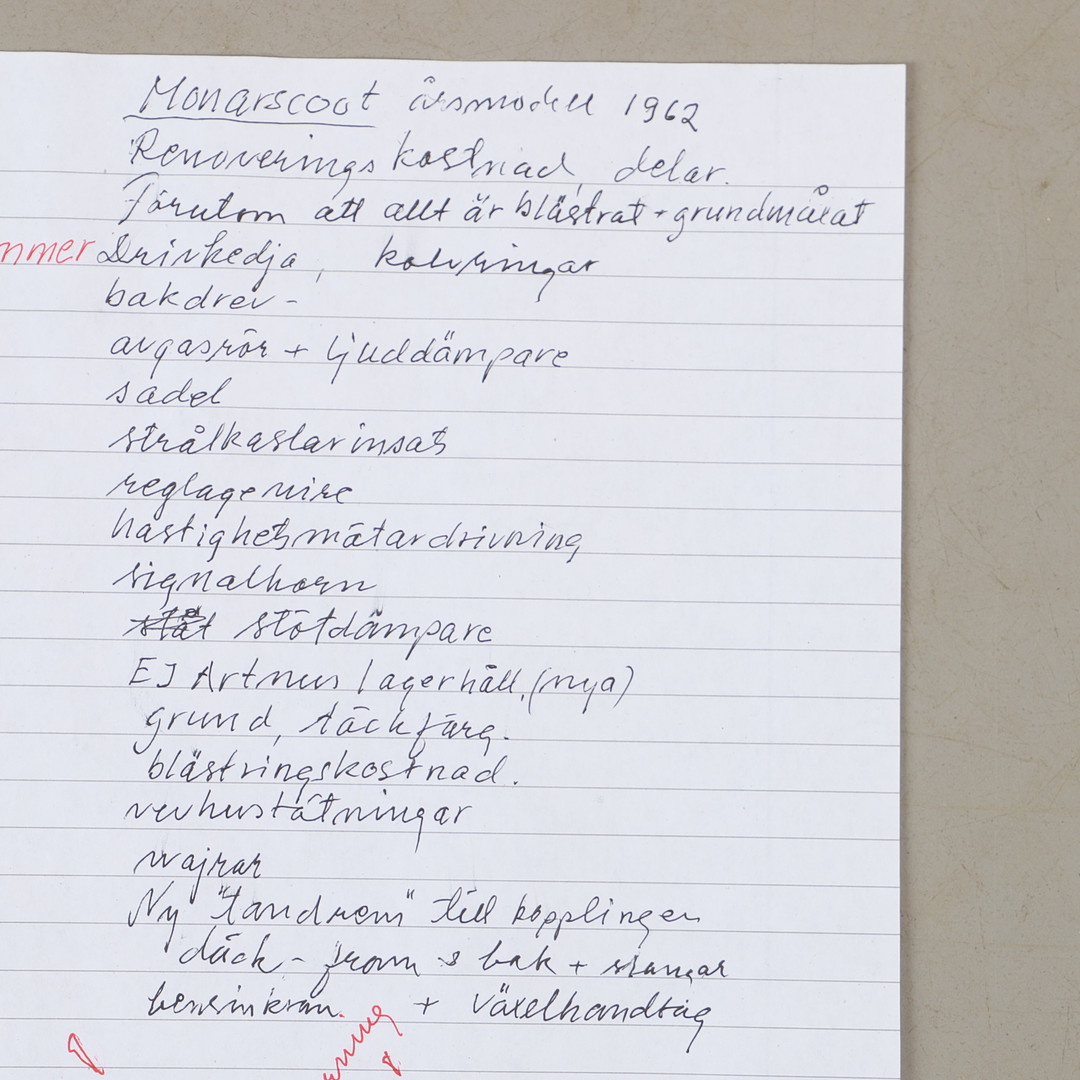 Monarscoot årsmodell 1962
Renoveringskostnad, delar.
Förutom att allt är blästrat + grundmålat
mmer Drivkedja, kolvringar
bakdrev -
avgasrör + ljuddämpare
sadel
strålkastarinsats
reglagevire
hastighetsmätardrivning
signalhorn
stöt stötdämpare
EJ Artnus lagerhåll. (nya)
grund, täckfärg.
blästringskostnad.
vevhustätningar
wajrar
Ny "tandrem" till kopplingen
däck - fram & bak + slangar
bensinkran. + växelhandtag